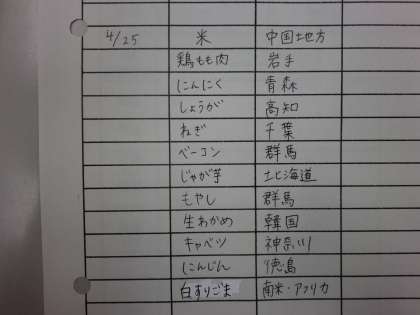 4/25 米 中国地方
鶏もも肉 岩手
にんにく 青森
しょうが 高知
ねぎ 千葉
ベーコン 群馬
じゃが芋 北海道
もやし 群馬
生わかめ 韓国
キャベツ 神奈川
にんじん 徳島
白すりごま 南米・アフリカ